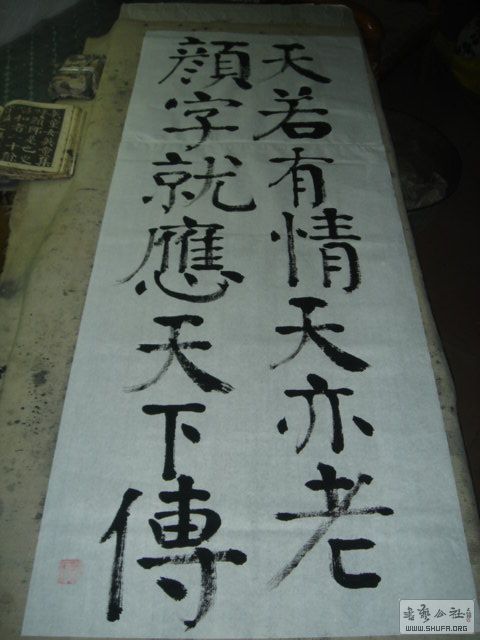 天若有情天亦老
顔字就應天下傳
書藝公社
WWW.SHUFA.ORG